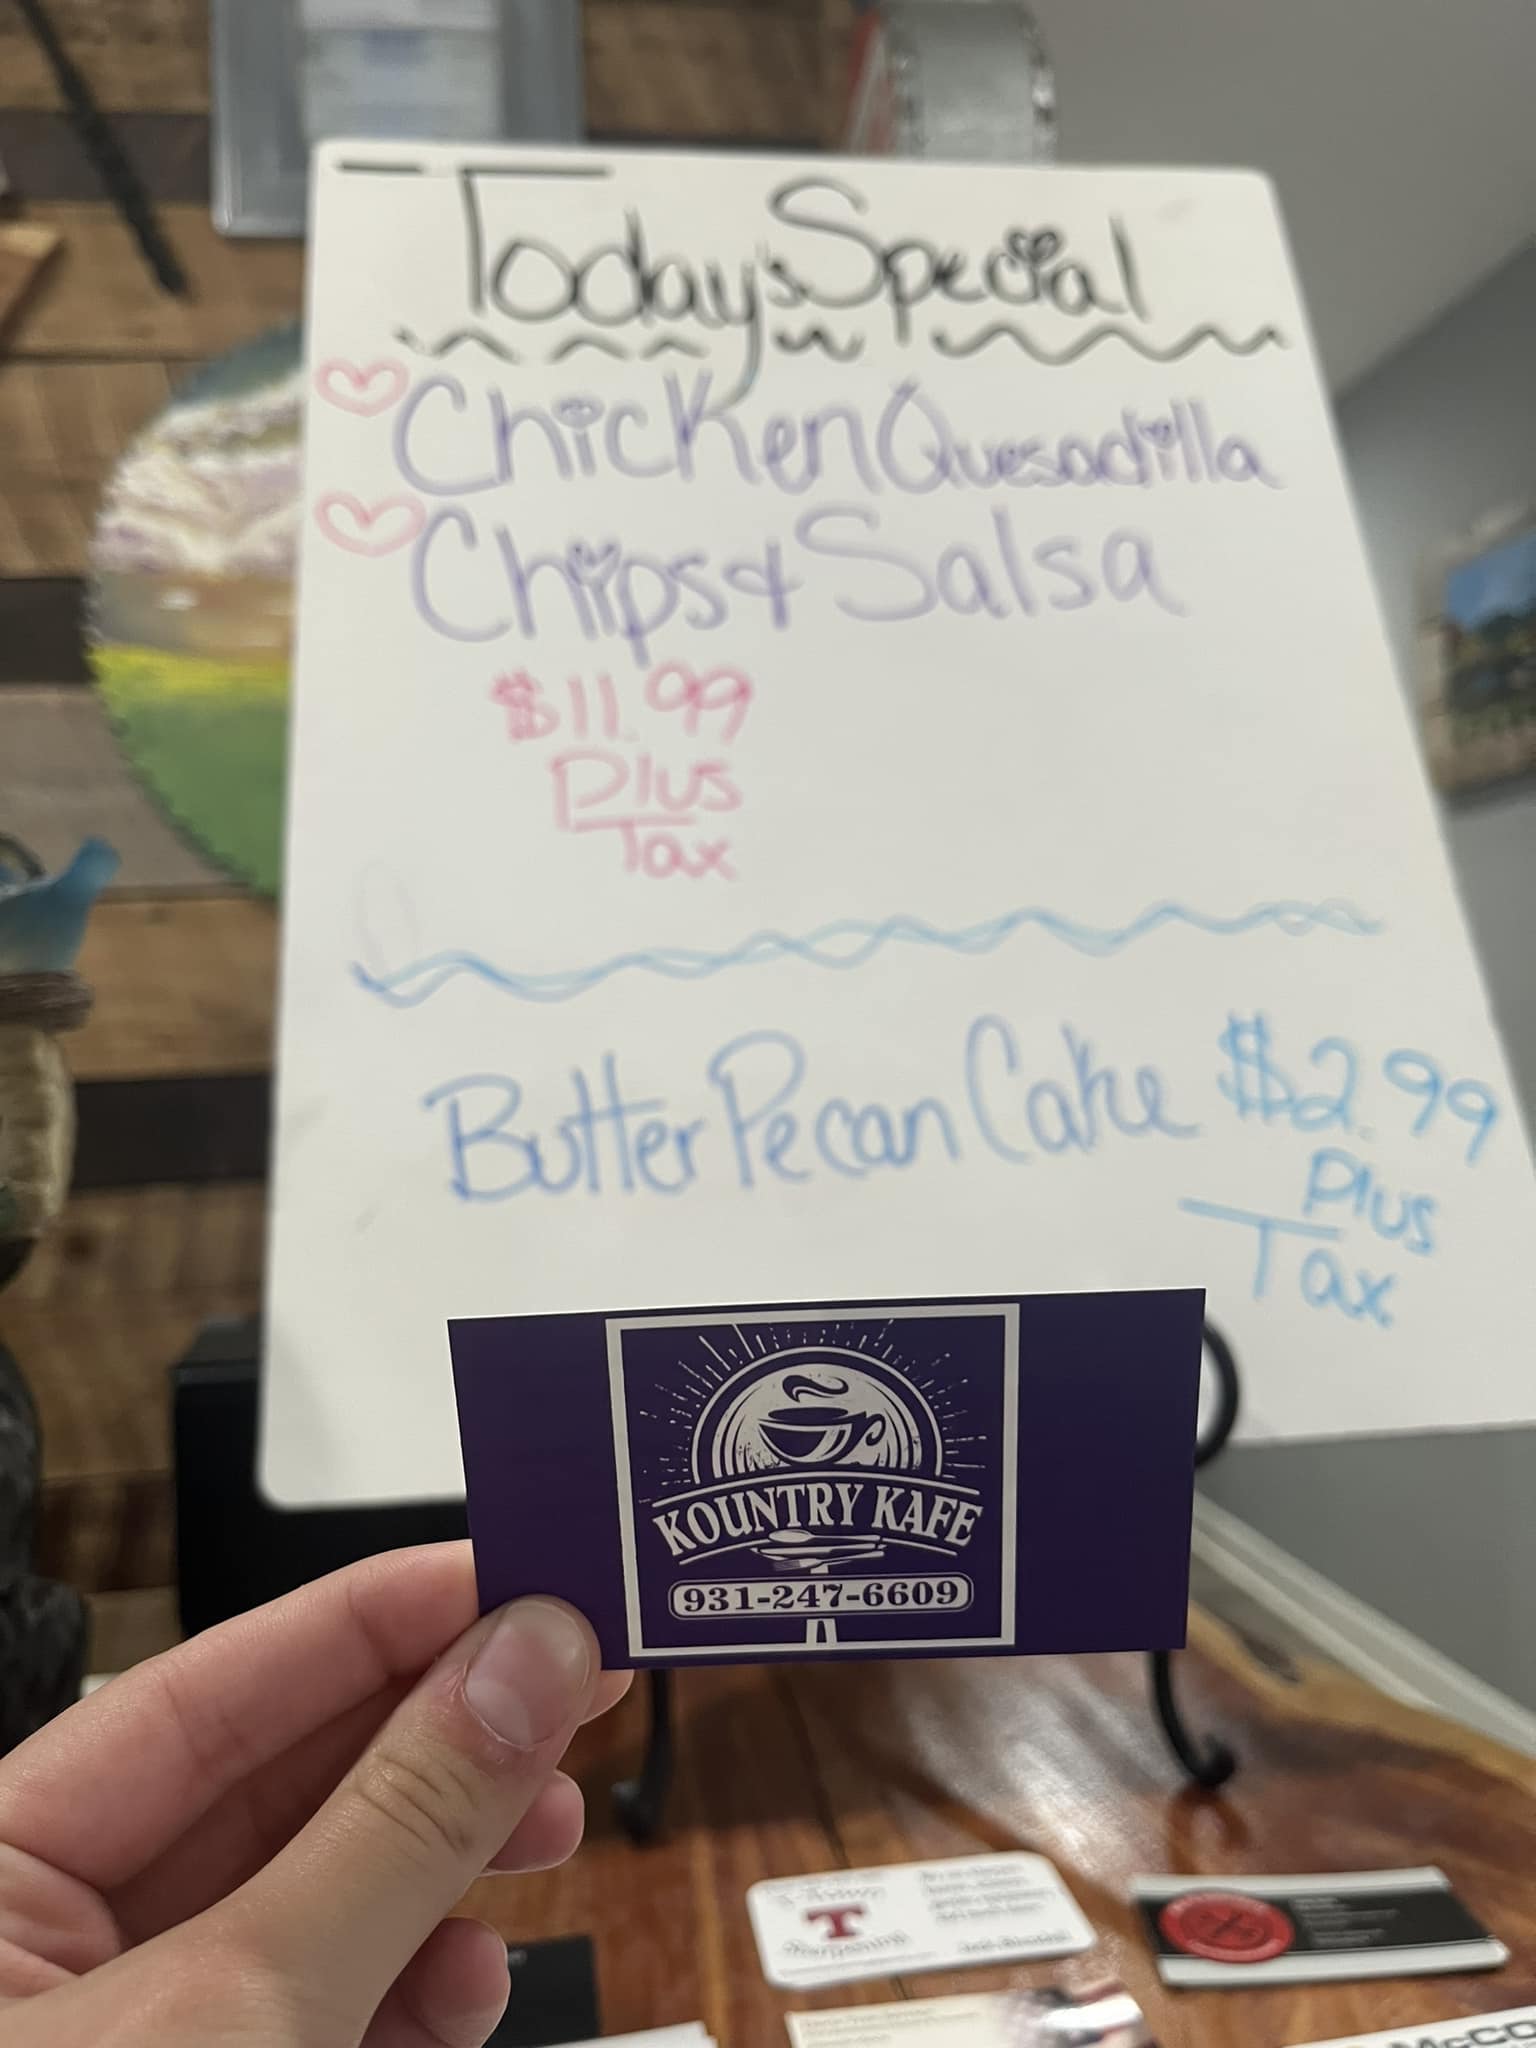 Today's Special
Chicken Quesadilla
Chips & Salsa
$11.99
Plus
Tax
Butter Pecan Cake $2.99
Plus
Tax
KOUNTRY KAFE
931-247-6609
T
McCO